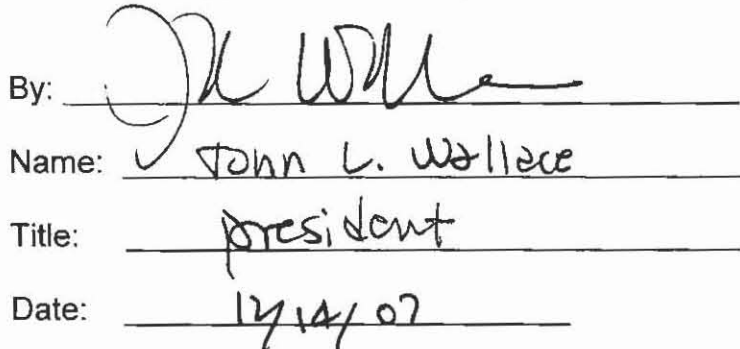 By:
Name: John L. Wallace
Title: president
Date: 12/14/07